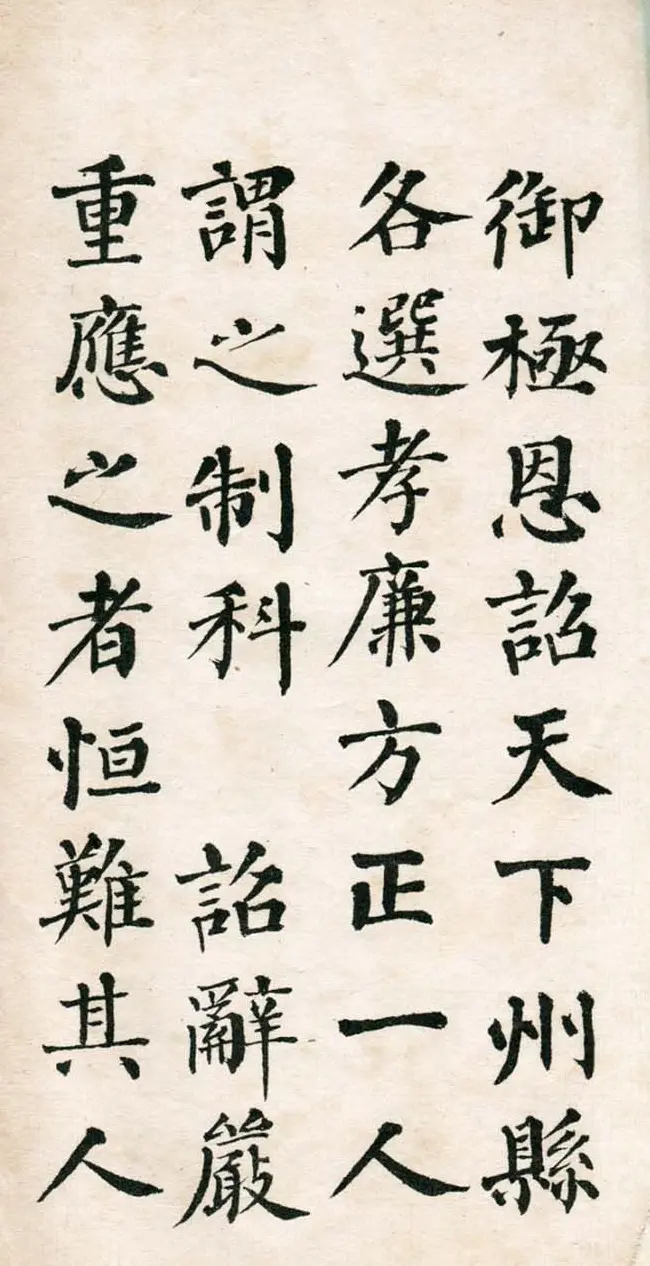 御極恩詔天下州縣
各選孝廉方正一人
謂之制科　詔辭嚴
重應之者恒難其人